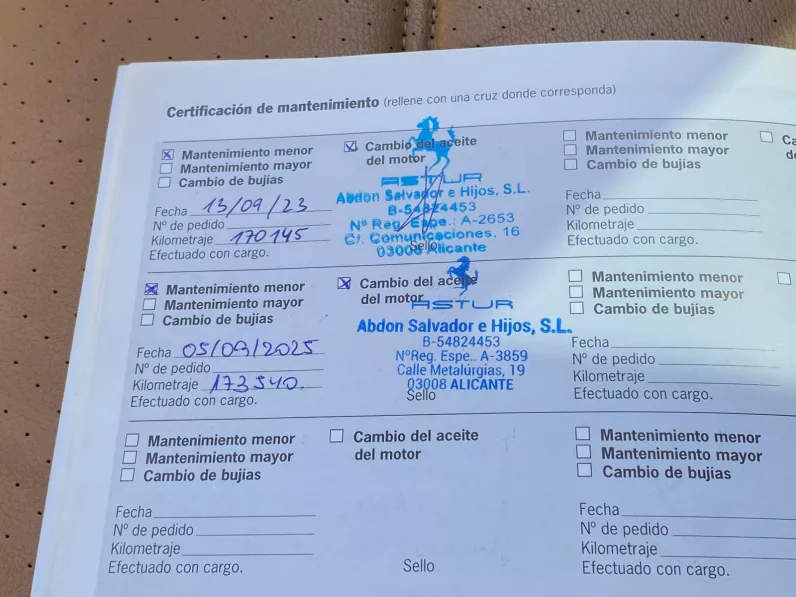 Certificación de mantenimiento (rellene con una cruz donde corresponda)
Mantenimiento menor
Mantenimiento mayor
Cambio de bujías
Cambio del aceite
del motor
Fecha 13/09/23
Nº de pedido
Kilometraje 170145
Efectuado con cargo.
ASTUR
Abdon Salvador e Hijos, S.L.
B-54824453
Nº Reg. Espe.: A-2653
C/. Comunicaciones, 16
03008 Alicante
Sello
Mantenimiento menor
Mantenimiento mayor
Cambio de bujías
Fecha
Nº de pedido
Kilometraje
Efectuado con cargo.
Mantenimiento menor
Mantenimiento mayor
Cambio de bujías
Cambio del aceite
del motor
Fecha 05/09/2025
Nº de pedido
Kilometraje 173540.
Efectuado con cargo.
ASTUR
Abdon Salvador e Hijos, S.L.
B-54824453
NºReg. Espe.. A-3859
Calle Metalúrgias, 19
03008 ALICANTE
Sello
Mantenimiento menor
Mantenimiento mayor
Cambio de bujías
Fecha
Nº de pedido
Kilometraje
Efectuado con cargo.
Mantenimiento menor
Mantenimiento mayor
Cambio de bujías
Cambio del aceite
del motor
Fecha
Nº de pedido
Kilometraje
Efectuado con cargo.
Sello
Mantenimiento menor
Mantenimiento mayor
Cambio de bujías
Fecha
Nº de pedido
Kilometraje
Efectuado con cargo.